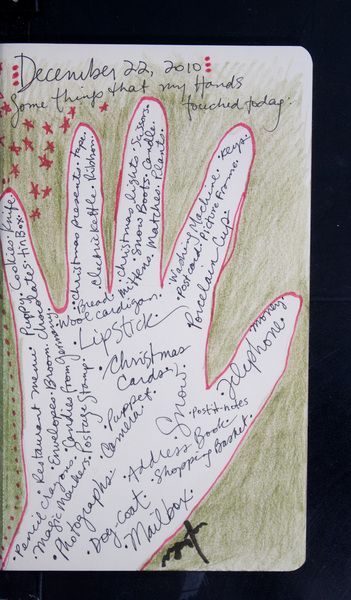 December 22, 2010
Some things that my Hands
touched today:
Puppy. Cookies. Knife.
Chocolates. Tin Box.
Christmas presents. Tape.
Electric Kettle. Ribbon.
Christmas lights. Scissors.
Snow Boots. Candle.
Mittens. Matches. Plants.
Bread.
Wool cardigan.
Washing Machine. Keys.
Postcard. Picture Frame.
Porcelain Cup.
Lipstick
Christmas
Cards.
Puppet.
Camera.
Snow.
Restaurant menu.
Pencil Crayons. Envelopes. Broom.
Magic Markers. Candies from Germany.
Postage Stamp.
Photographs
Money.
Telephone.
Post-it-notes
Address Book.
Shopping Basket.
Dog-Coat.
Mailbox.